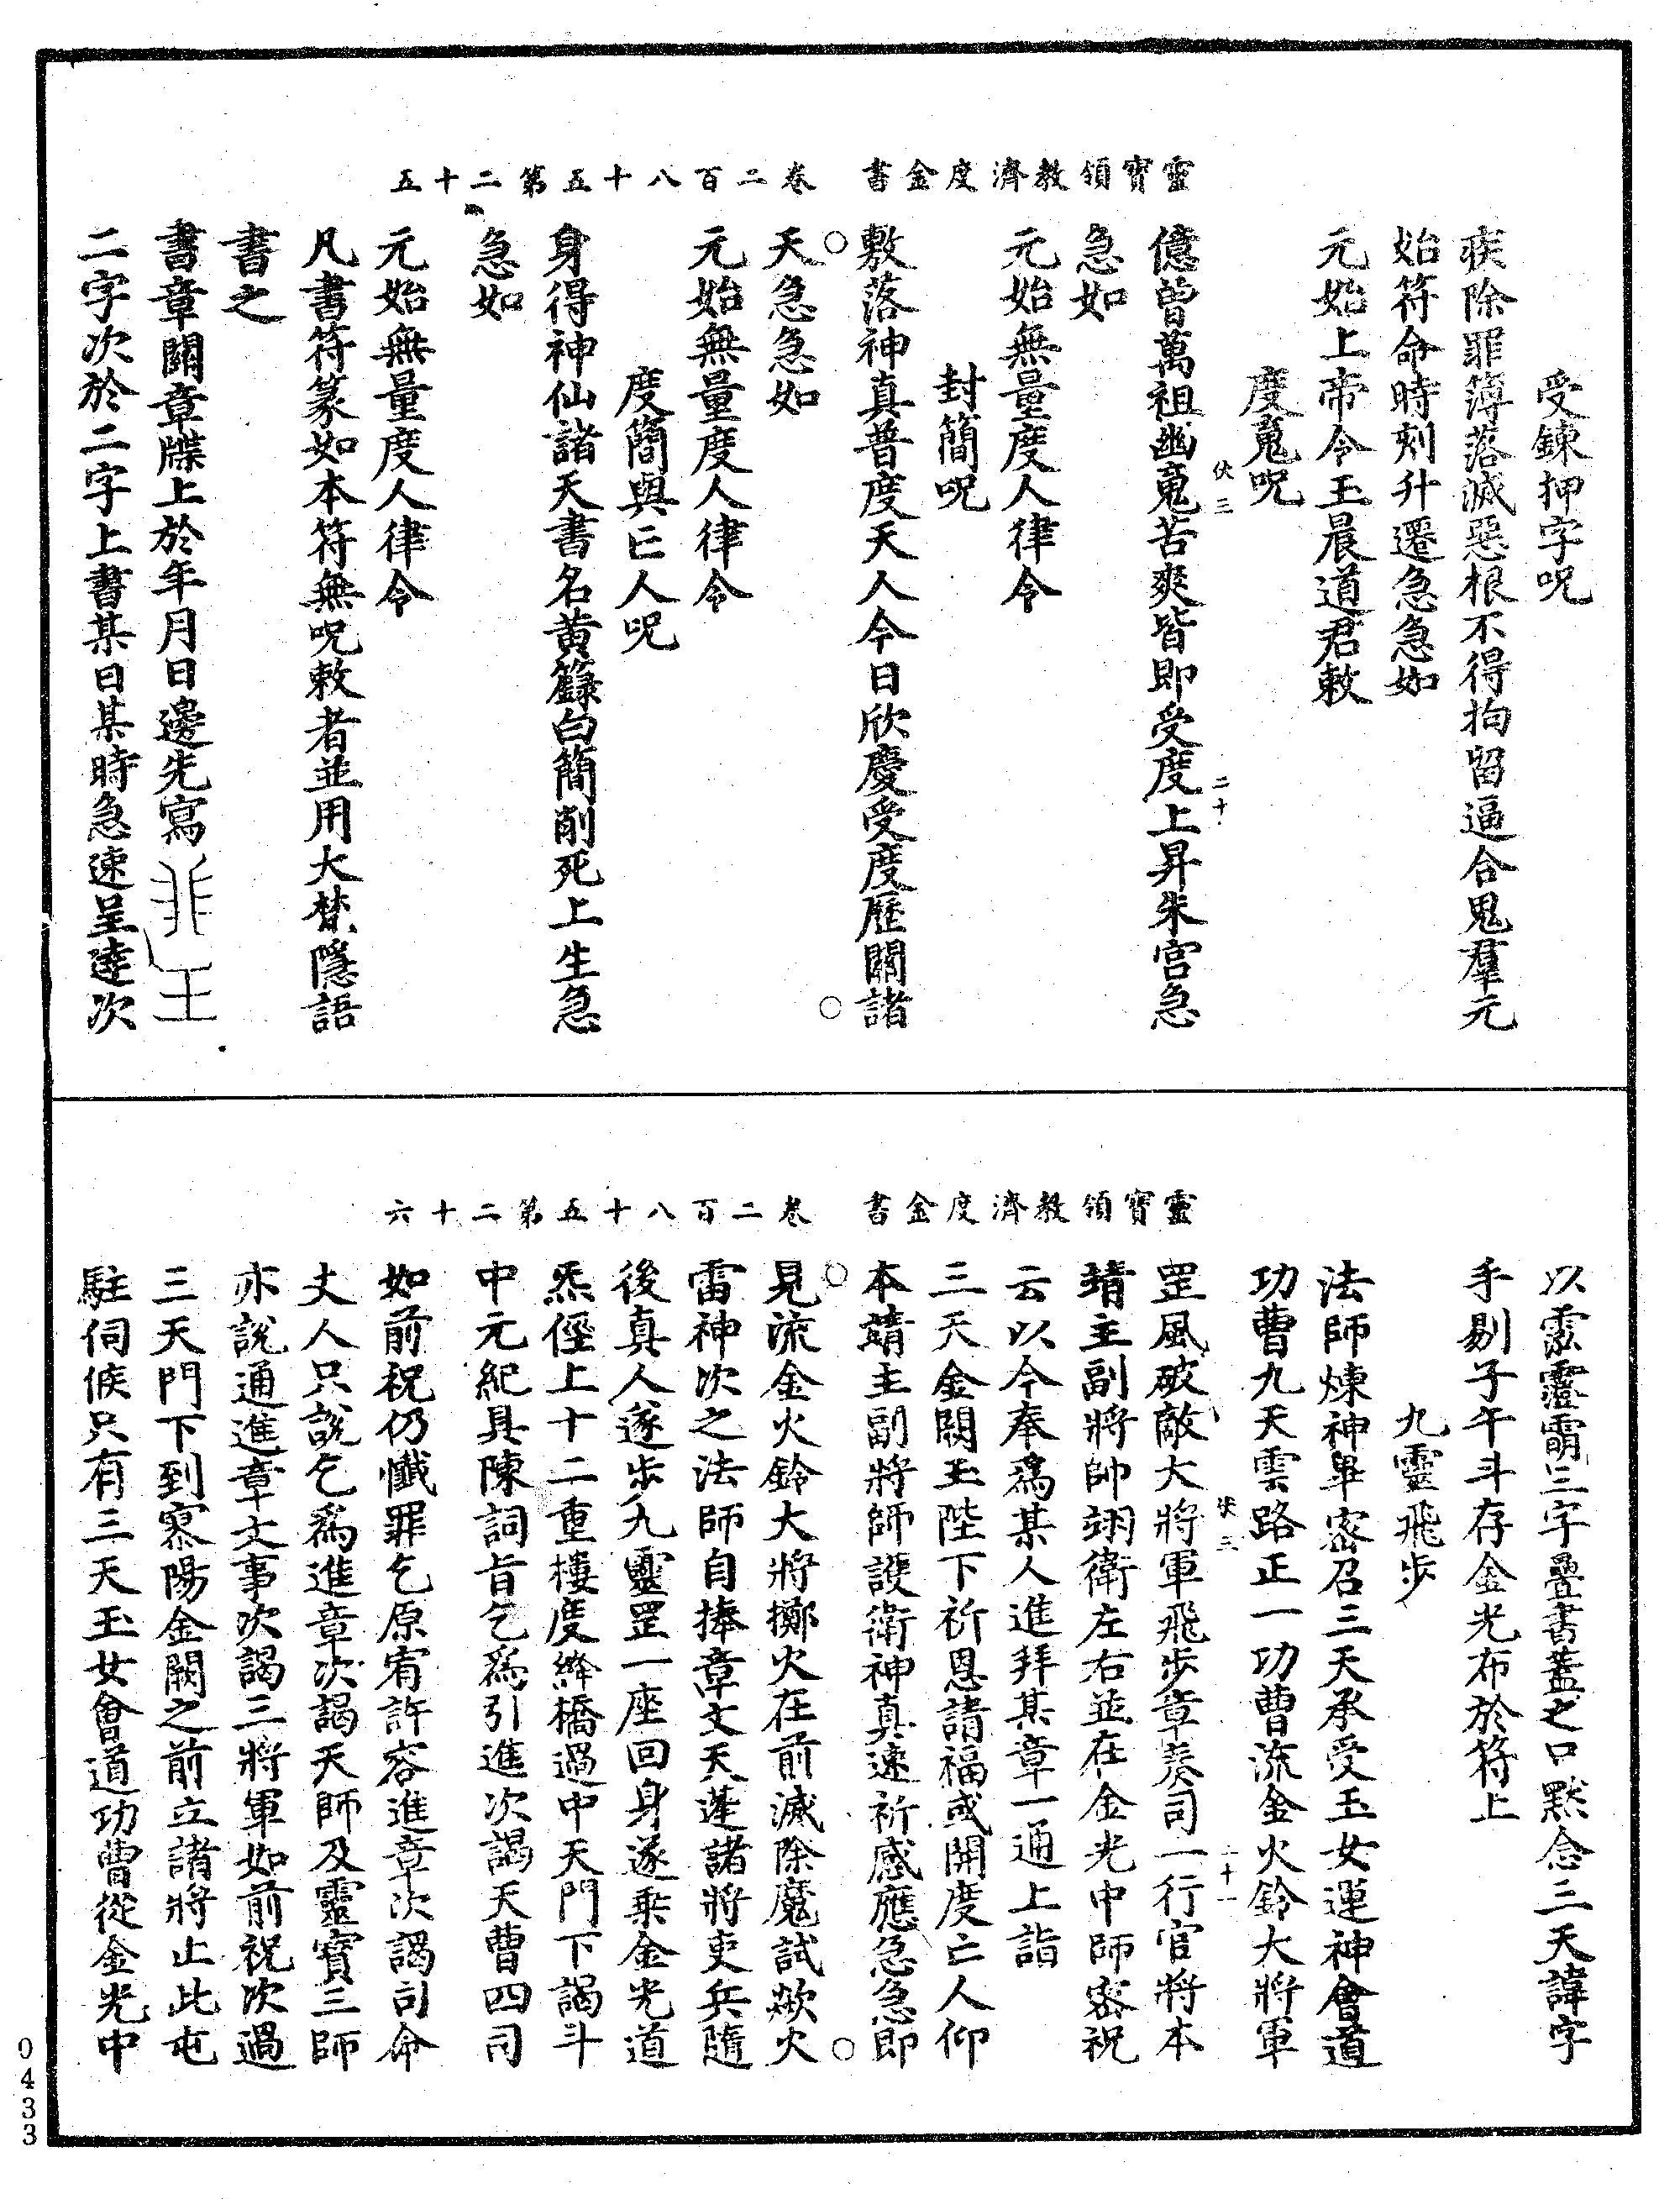 靈寶領教濟度金書　卷二百八十五第二十五
受鍊押字呪
疾除罪簿落滅惡根不得拘留逼合鬼羣元
始符命時刻升遷急急如
元始上帝令玉晨道君敕
度䰟呪
億曾萬祖幽䰟苦爽皆即受度上昇朱宮急
急如
元始無量度人律令
封簡呪
敷落神真普度天人今日欣慶受度歷關諸
天急急如
元始無量度人律令
度簡與亡人呪
身得神仙諸天書名黃籙白簡削死上生急
急如
元始無量度人律令
凡書符篆如本符無呪敕者並用大梵隱語
書之
書章關章牒上於年月日邊先寫
二字次於二字上書某日某時急速呈達次
伕三
二十
靈寶領教濟度金書　卷二百八十五第二十六
三字疊書蓋之口默念三天諱字
手剔子午斗存金光布於符上
九靈飛步
法師煉神畢密召三天承受玉女運神會道
功曹九天雲路正一功曹流金火鈴大將軍
罡風破敵大將軍飛步章奏司一行官將本
靖主副將帥翊衛左右並在金光中師密祝
云以今奉爲某人進拜某章一通上詣
三天金闕玉陛下祈恩請福或開度亡人仰
本靖主副將師護衛神真速祈感應急急即
見流金火鈴大將擲火在前滅除魔試歘火
雷神次之法師自捧章文天蓬諸將吏兵隨
後真人遂步九靈罡一座回身遂乘金光道
炁徑上十二重樓度絳橋過中天門下謁斗
中元紀具陳詞旨乞爲引進次謁天曹四司
如前祝仍懺罪乞原宥許容進章次謁司命
丈人只說乞爲進章次謁天師及靈寶三師
亦說通進章文事次謁三將軍如前祝次過
三天門下到寥陽金闕之前立諸將止此屯
駐伺候只有三天玉女會道功曹從金光中
伕三
二十一
0433